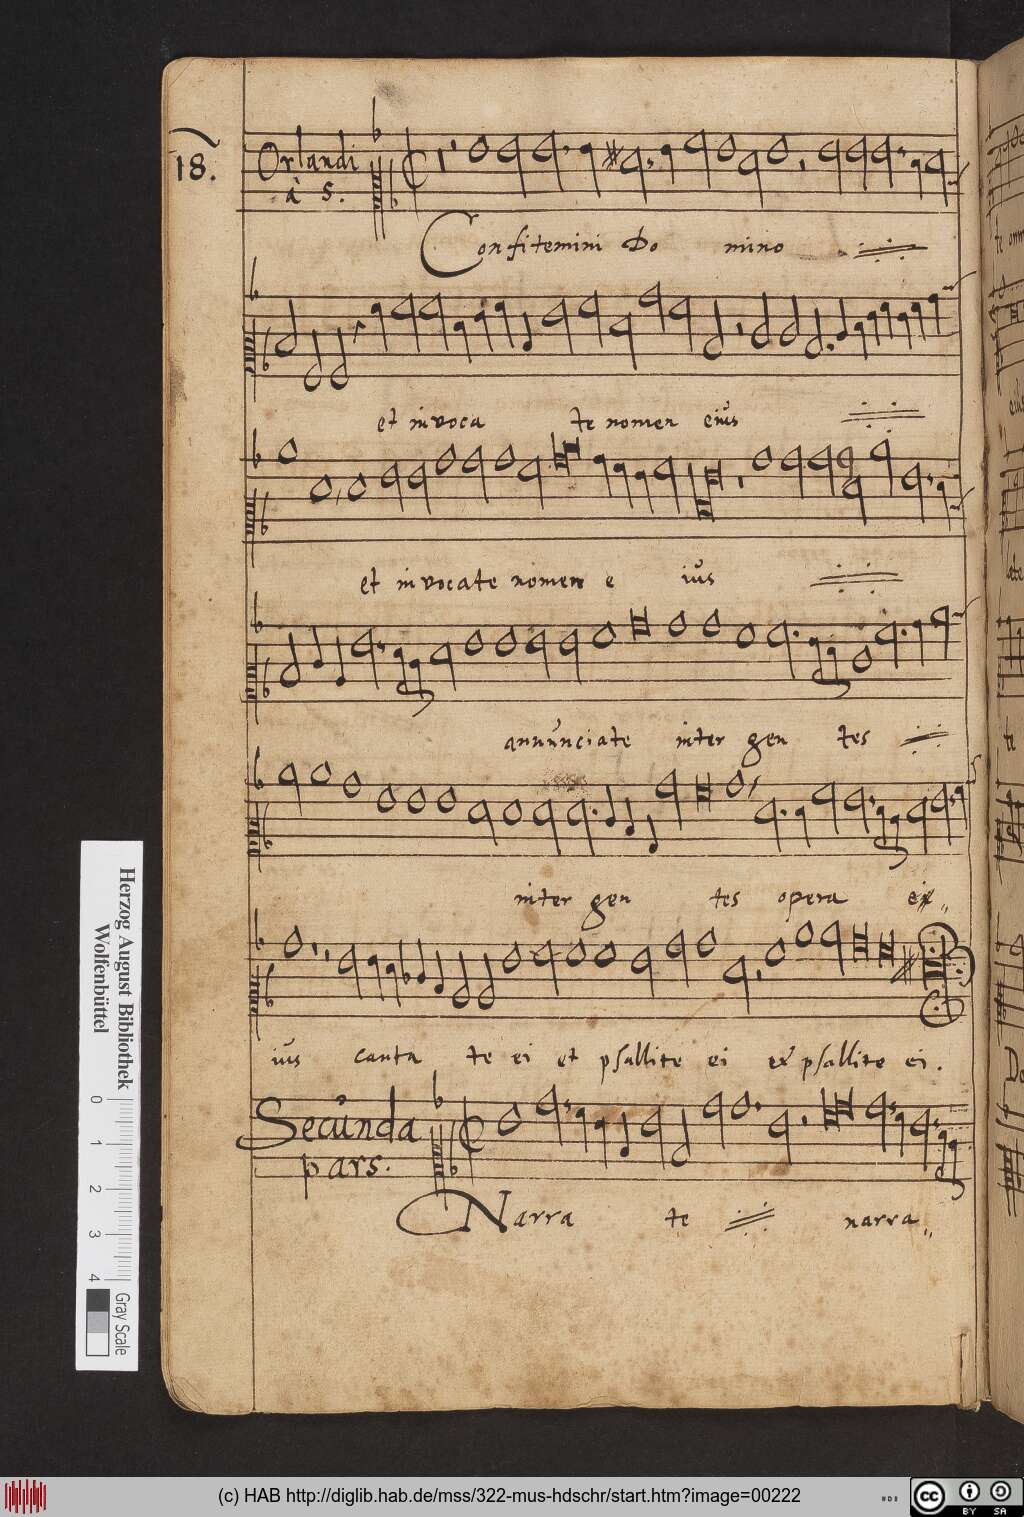 18.
Orlandi
à 5.
Confitemini Do mino
et invoca te nomen eius
et invocate nomen e ius
annunciate inter gen tes
inter gen tes opera ei„
ius canta te ei et psallite ei et psallite ei.
Secunda
pars.
Narra te narra„
Herzog August Bibliothek
Wolfenbüttel
0 1 2 3 4
Gray Scale
(c) HAB http://diglib.hab.de/mss/322-mus-hdschr/start.htm?image=00222
cc BY SA